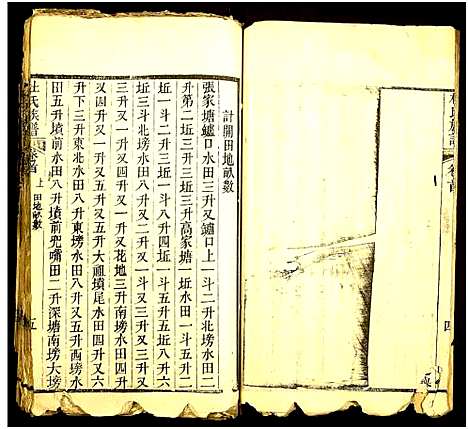 計開田地畝數
張家塘鱸口水田三升又鱸口上一斗二升北塝水田二
升第二坵三升三坵三升高家塘一坵水田一斗五升二
坵一斗二升三坵一斗二升四坵一斗二升
坵三斗北塝水田一斗又一斗三升又二升又
三升又一升又花地三升南塝水田八升又一斗
一升又四升又五升大祖墳尾水田四升又六
升下三升東北水田八升東塝水田八升又五升西塝水
田五升墳前水田八升墳前兜嘴田二升深塘南塝大塝
杜氏族譜 卷首 上 田地畝數 五
杜氏族譜 卷首 四